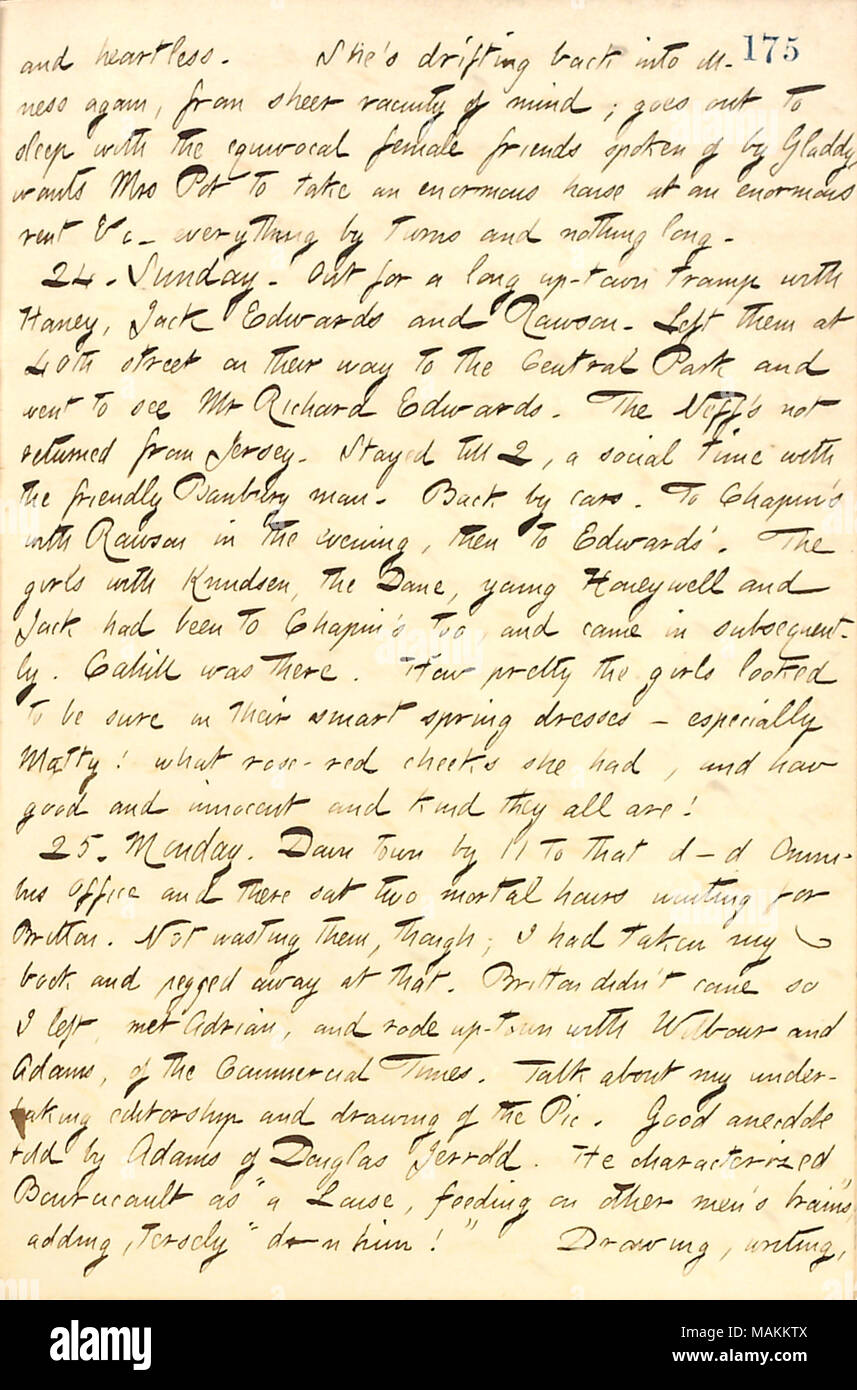 175
and heartless. She's drifting back into ill-
ness again, from sheer vacuity of mind; goes out to
sleep with the equivocal female friends spoken of by Gladdy,
wants Mrs Pot to take an enormous house at an enormous
rent &c — everything by turns and nothing long.
24. Sunday. Out for a long up-town tramp with
Haney, Jack Edwards and Rawson. Left them at
40th street on their way to the Central Park and
went to see Mr Richard Edwards. The Neff's not
returned from Jersey. Stayed till 2, a social time with
the friendly Banbury man. Back by cars. To Chapin's
with Rawson in the evening, then to Edwards'. The
girls with Knudsen, the Dane, young Honeywell and
Jack had been to Chapin's too, and came in subsequent-
ly. Cahill was there. How pretty the girls looked
to be sure in their smart spring dresses — especially
Matty! what rose-red cheeks she had, and how
good and innocent and kind they all are!
25. Monday. Down town by 11 to that d—d Omni-
bus Office and there sat two mortal hours waiting for
Britton. Not wasting them, though; I had taken my
book and pegged away at that. Britton didn't come so
I left, met Adrian, and rode up-town with Wilbour and
Adams, of the Commercial Times. Talk about my under-
taking editorship and drawing of the Pic. Good anecdote
told by Adams of Douglas Jerrold. He characterized
Bourcicault as "a Louse, feeding on other men's brains",
adding, tersely "d—n him!" Drawing, writing,
alamy
Image ID: MAKKTX
www.alamy.com